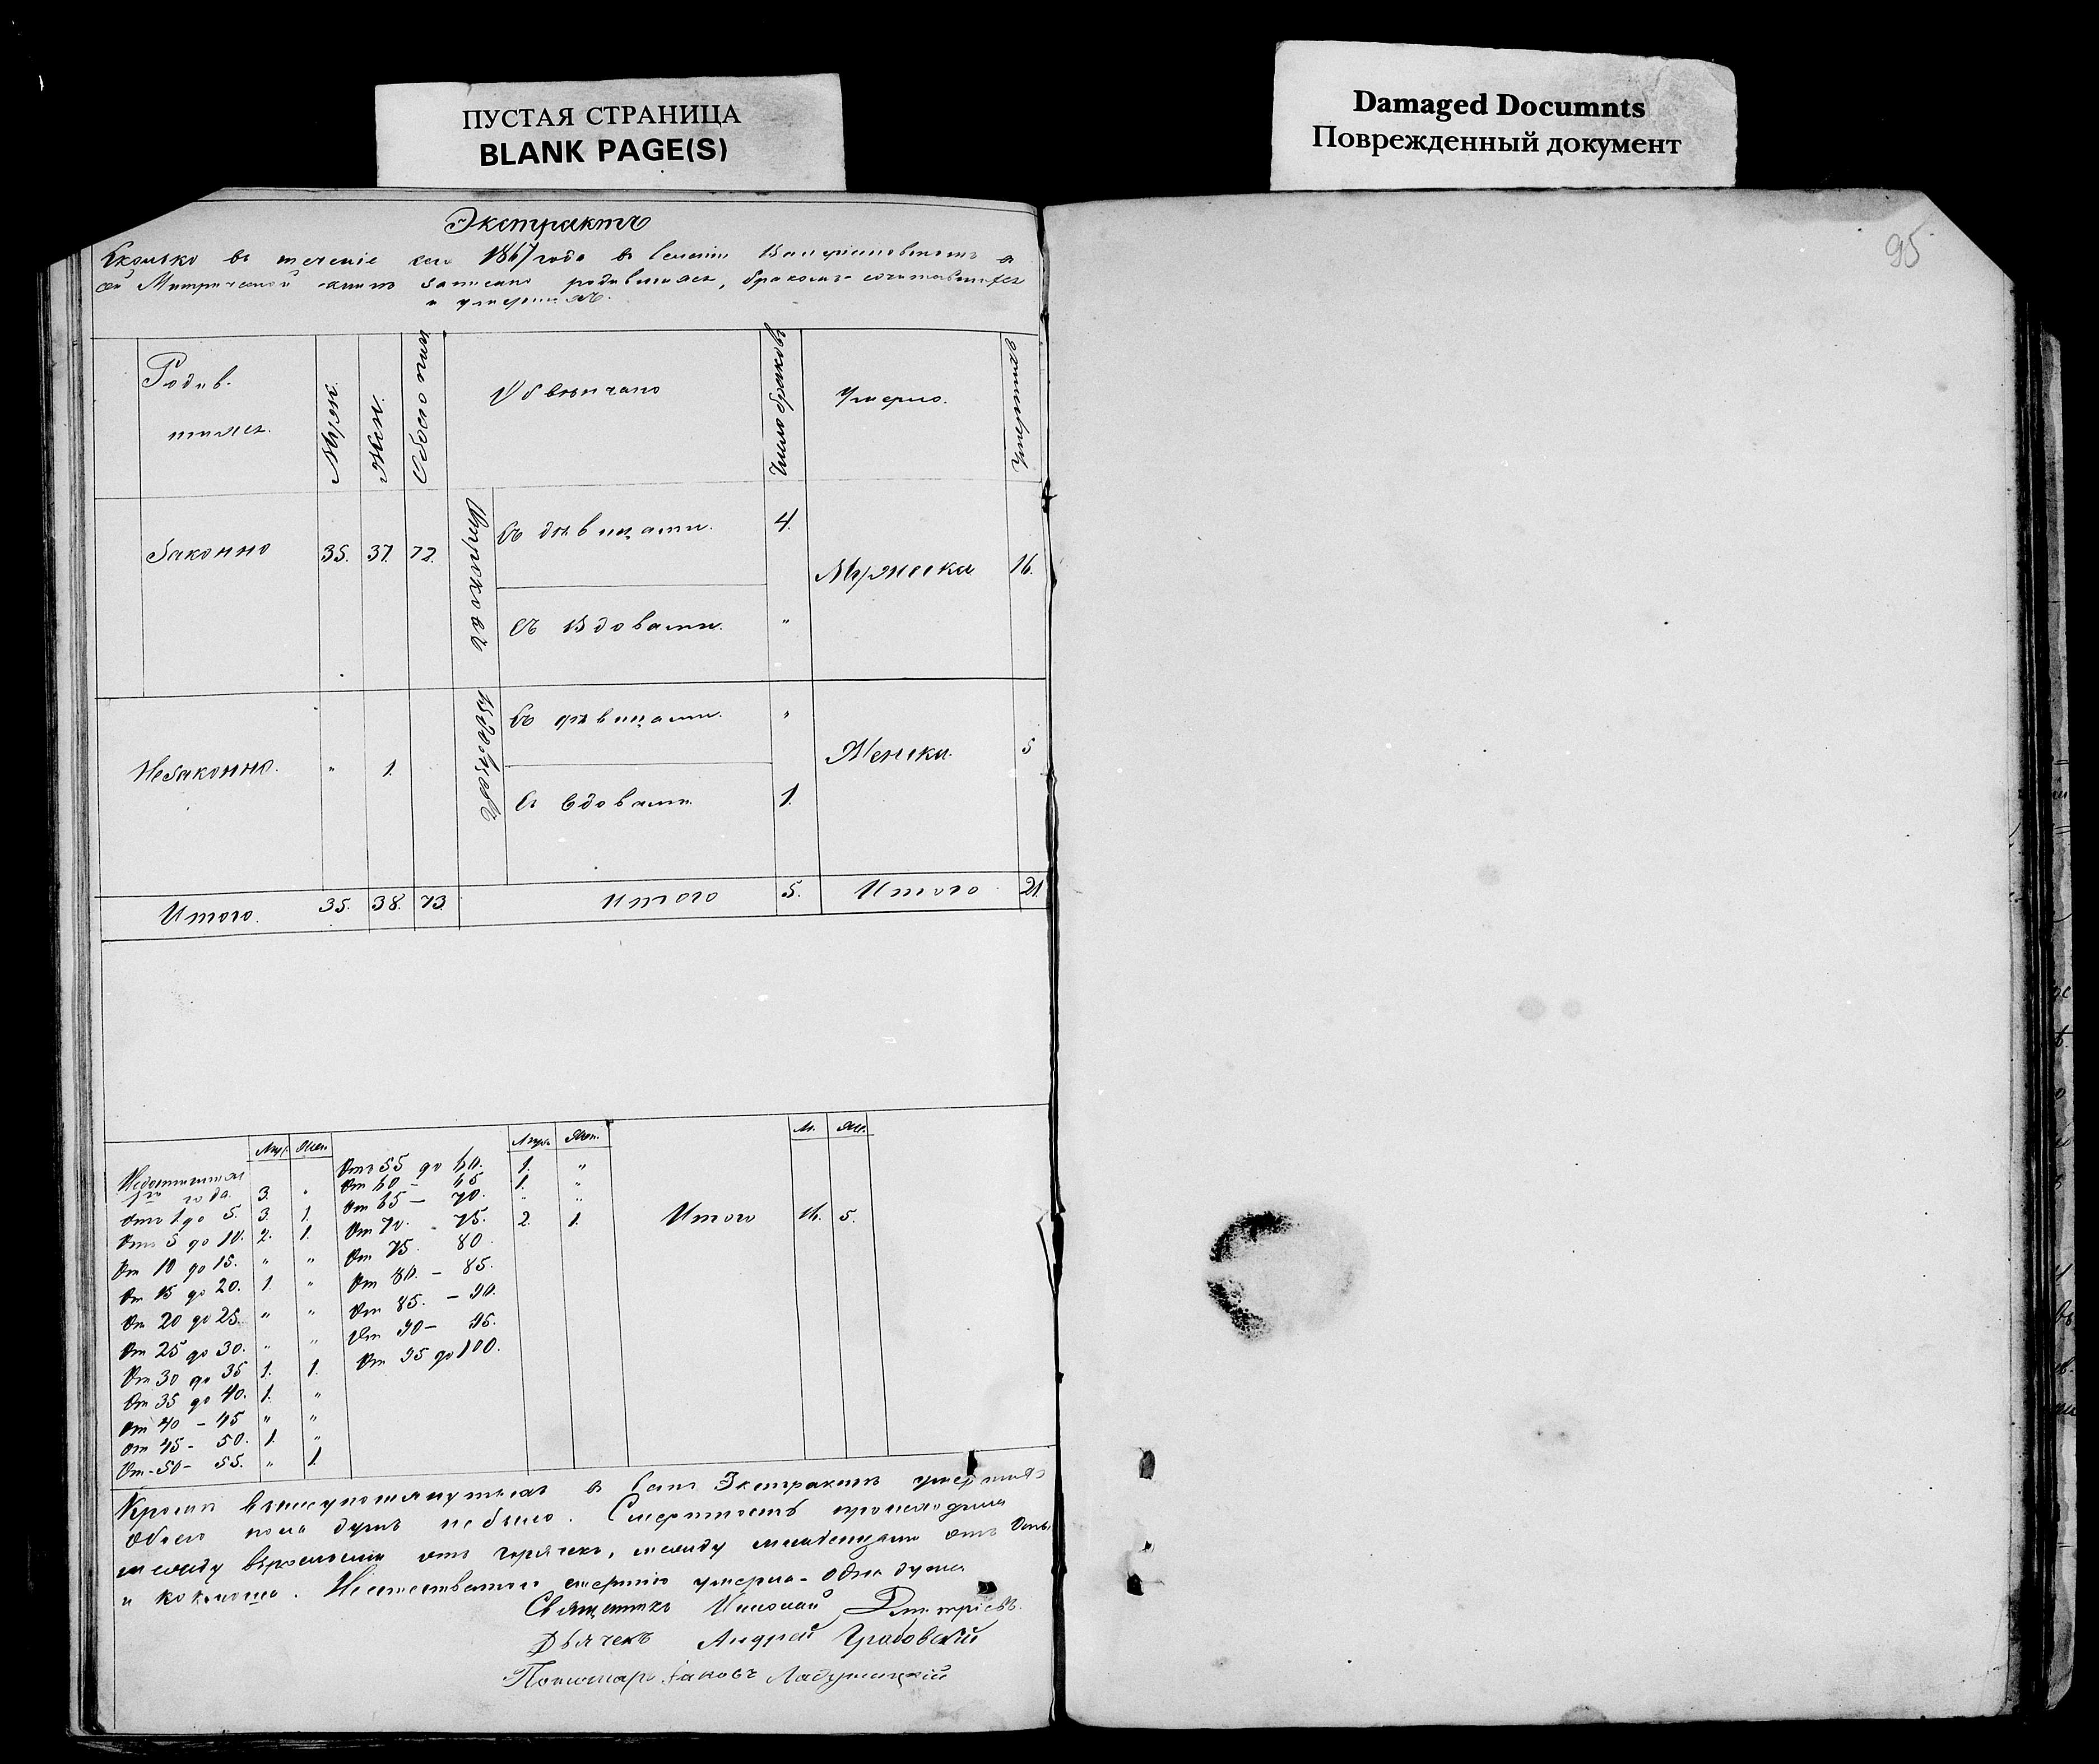 ПУСТАЯ СТРАНИЦА
BLANK PAGE(S)
Damaged Documnts
Поврежденный документ
95
Экстрактъ
Сколько въ теченіе сего 1867 года въ селеніи въ
сей Метрической книгѣ записано родившихся, бракомъ сочетавшихся
и умершихъ.
Родив-
шихся.
Муж.
Жен.
Обоего пола
Обвѣнчано
Число браковъ
Умерло.
Умершихъ
Законно 35. 37. 72.
Отроковъ
Съ дѣвицами. 4.
Съ вдовами. "
Мужеска 16.
Незаконно. " 1.
Вдовцовъ
Съ дѣвицами. "
Съ вдовами. 1.
Женска. 5
Итого. 35. 38. 73.
Итого 5.
Итого 21
Муж. Жен.
Недостигшихъ
1го года. 3. "
Отъ 1 до 5. 3. 1.
Отъ 5 до 10. 2. 1.
От 10 до 15. " "
От 15 до 20. 1. "
От 20 до 25. " "
От 25 до 30. " "
От 30 до 35 1. 1.
От 35 до 40. 1. "
От 40 – 45 " "
От 45 - 50. 1. "
От - 50 - 55. " 1.
Муж. Жен.
Отъ 55 до 60. 1. "
От 60 – 65 1. "
От 65 – 70. " "
От 70. - 75. 2. 1.
От 75. 80.
От 80. – 85.
От 85. – 90.
От 90 – 95.
От 95 до 100.
М. Же.
Итого 16. 5.
Кромѣ вышеупомянутыхъ въ семъ Экстрактѣ умершихъ
обоего пола душъ небыло. Смертность происходила
между взрослыми отъ горячки, между младенцами отъ Оспы
и коклюша. Неестественною смертію умерла - одна душа
Священникъ Николай Димитріевъ.
Дьячекъ Андрей Грабовскій
Пономарь Іаковъ